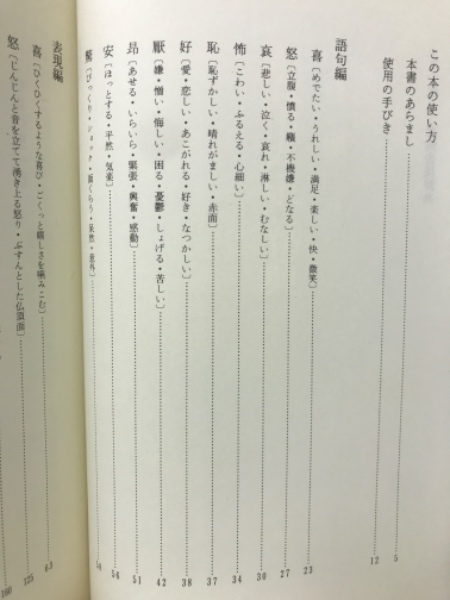 この本の使い方
本書のあらまし 5
使用の手びき 12
語句編
喜〔めでたい・うれしい・満足・楽しい・快・微笑〕 23
怒〔立腹・憤る・癪・不機嫌・どなる〕 27
哀〔悲しい・泣く・哀れ・淋しい・むなしい〕 30
怖〔こわい・ふるえる・心細い〕 34
恥〔恥ずかしい・晴れがましい・赤面〕 37
好〔愛・恋しい・あこがれる・好き・なつかしい〕 38
厭〔嫌・憎い・悔しい・困る・憂鬱・しょげる・苦しい〕 42
昂〔あせる・いらいら・緊張・興奮・感動〕 51
安〔ほっとする・平然・気楽〕 56
驚〔びっくり・ショック・面くらう・呆然・意外〕
表現編
喜〔ひくひくするような喜び・こくっと嬉しさを噛みこむ〕 125
怒〔じんじんと音を立てて湧き上る怒り・ぶすんとした仏頂面〕 160